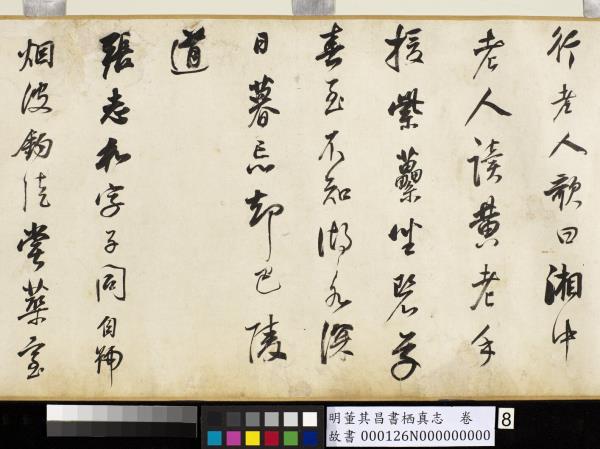 行老人歌曰湘中
老人讀黃老手
援紫藟坐碧草
春至不知湖水深
日暮忘却巴陵
道
張志和字子同自號
烟波釣徒嘗築室
明董其昌書栖真志 卷
故書 000126N000000000
8